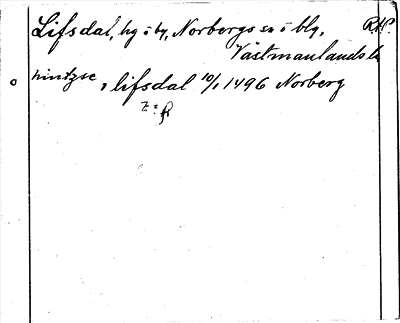 Lifsdal, hg i by, Norbergs sn o blg, RAP.
Västmanlands l.
hintzse, lifsdal 10/1 1496 Norberg